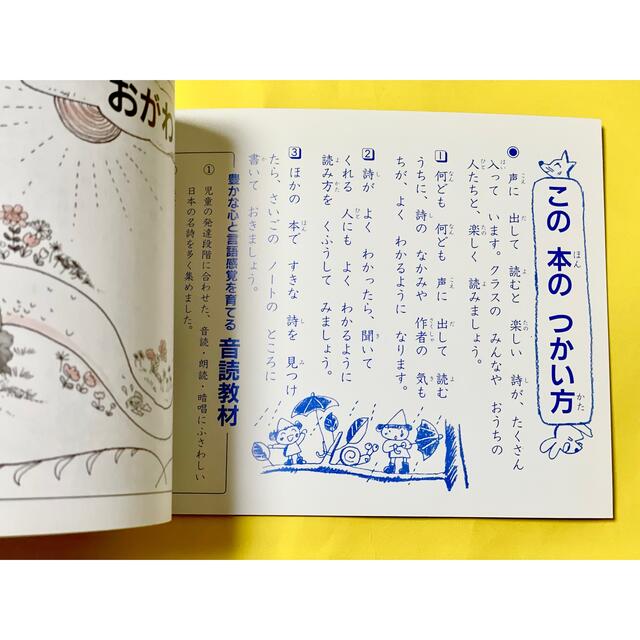 おがわ
この 本の つかい方
● 声に 出して 読むと 楽しい 詩が、たくさん
入って います。クラスの みんなや おうちの
人たちと、楽しく 読みましょう。
1 何ども 何ども 声に 出して 読む
うちに、詩の なかみや 作者の 気も
ちが、よく わかるように なります。
2 詩が よく わかったら、聞いて
くれる 人にも よく わかるように
読み方を くふうして みましょう。
3 ほかの 本で すきな 詩を 見つけ
たら、さいごの ノートの ところに
書いて おきましょう。
豊かな心と言語感覚を育てる 音読教材
① 児童の発達段階に合わせた、音読・朗読・暗唱にふさわしい
日本の名詩を多く集めました。